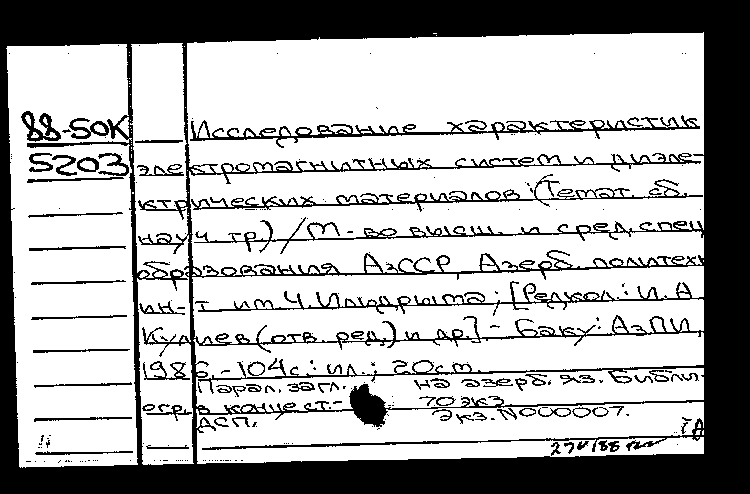 88-50К Исследование характеристик
5203 электромагнитных систем и диэле-
ктрических материалов: (Темат. сб.
науч. тр.) / М-во высш. и сред. спец
образования АзССР, Азерб. политехн
ин-т им. Ч. Илидрыма; [Редкол.: И. А.
Кулиев (отв. ред.) и др.]. - Баку: АзПИ,
1986. - 104 с.: ил.; 20 см.
Парал. загл. на азерб. яз. Библи-
огр. в конце ст. - 70 экз.
ДСП. Экз. N000007.